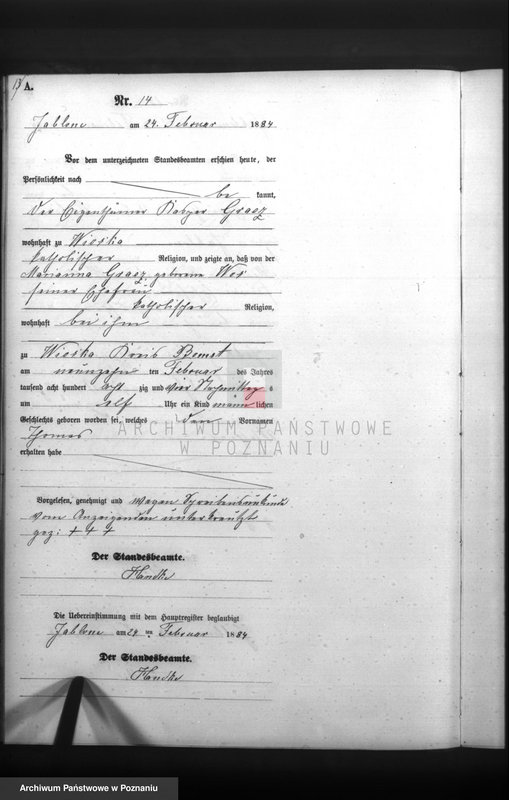 13 A.
Nr. 14
Jablone am 24. Februar 1884
Vor dem unterzeichneten Standesbeamten erschien heute, der
Persönlichkeit nach be kannt,
der Eigenthümer Kasper Grasz
wohnhaft zu Wioska
katholischer Religion, und zeigte an, daß von der
Marianna Grasz geborene Wos
seiner Ehefrau
katholischer Religion,
wohnhaft bei ihm
zu Wioska Kreis Bomst
am neunzehn ten Februar des Jahres
tausend acht hundert acht zig und vier Nachmittag s
um elf Uhr ein Kind männ lichen
Geschlechts geboren worden sei, welches den Vornamen
Thomas
erhalten habe
ARCHIWUM PAŃSTWOWE
W POZNANIU
Vorgelesen, genehmigt und wegen Schreibensunkunde
vom Anzeigenden unterkreuzt
gez: + + +
Der Standesbeamte.
Handke
Die Uebereinstimmung mit dem Hauptregister beglaubigt
Jablone am 24 ten Februar 1884
Der Standesbeamte.
Handke
Archiwum Państwowe w Poznaniu